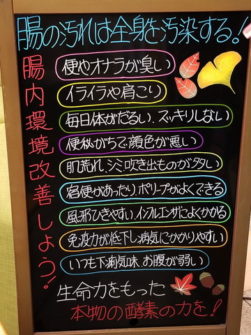 腸の汚れは全身を汚染する!
腸内環境改善しょう?
便やオナラが臭い
イライラや肩こり
毎日体がだるい、スッキリしない
便秘がちで顔色が悪い
肌荒れ、シミ吹き出ものが多い
宿便があったり、ポリープがよくできる
風邪ひきやすい インフルエンザによくかかる
免疫力が低下し病気にかかりやすい
いつも下痢気味 お腹が弱い
生命力をもった
本物の酵素の力を!